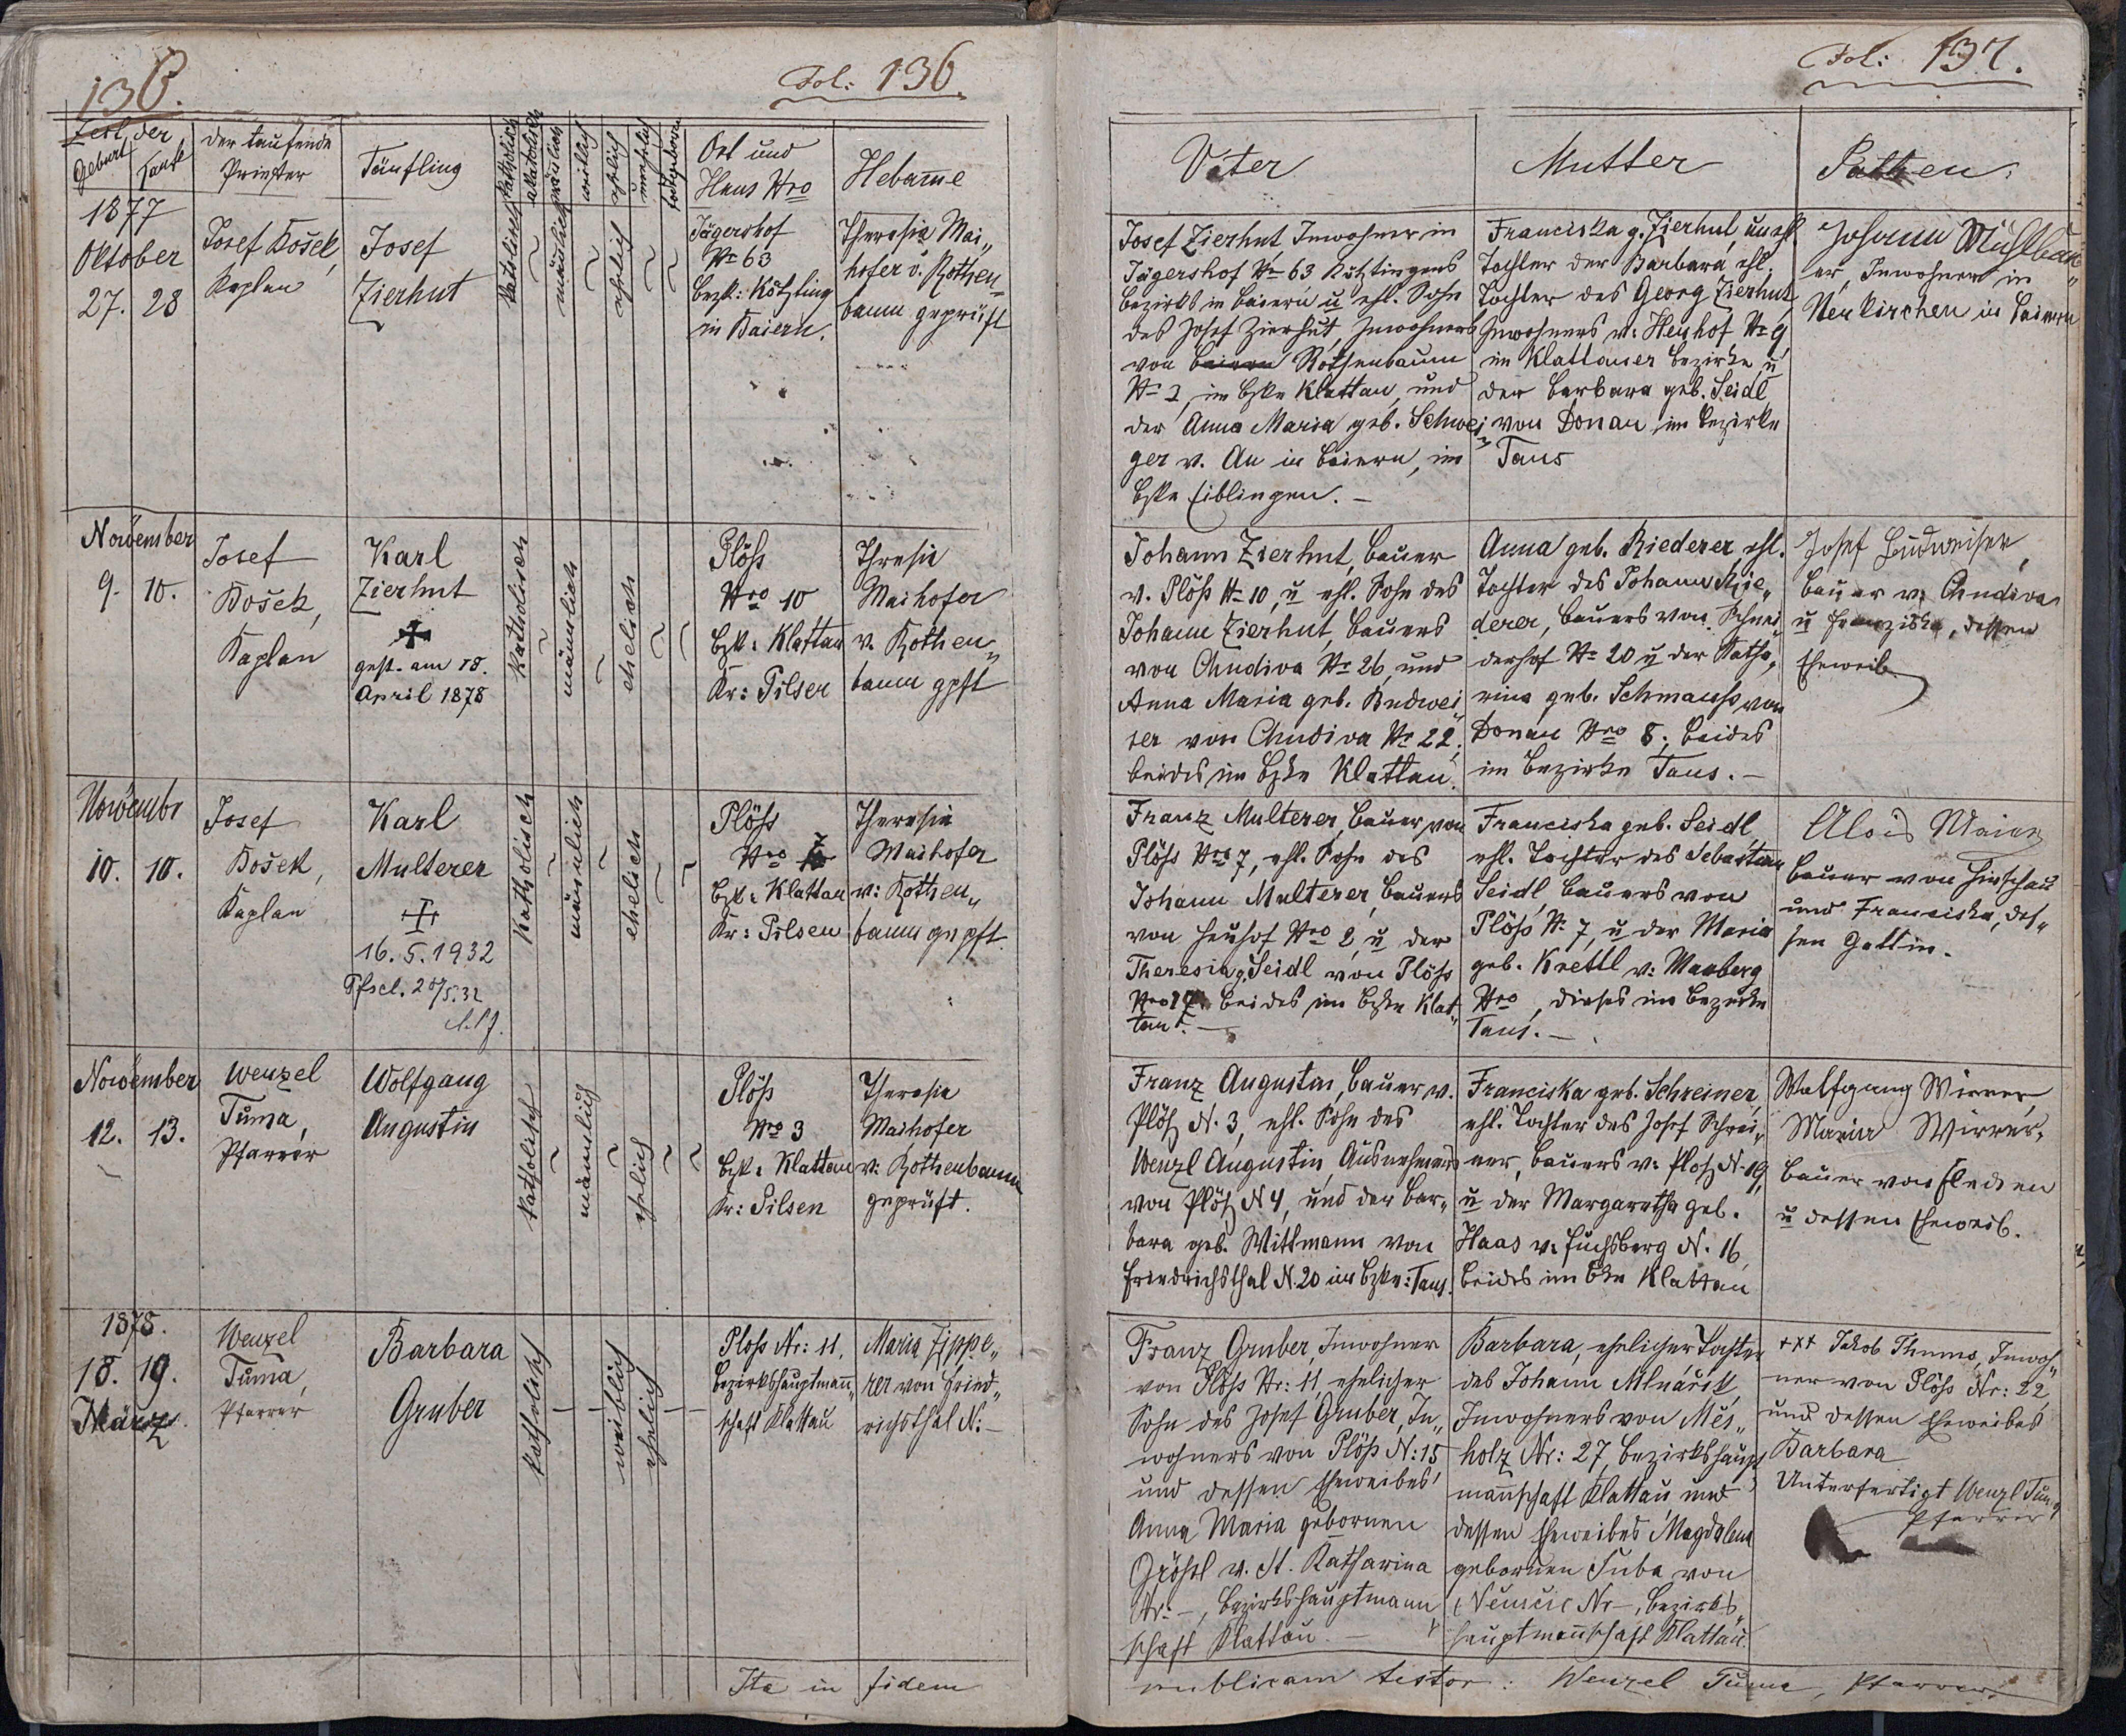 136.
Fol: 136.
Zeit der
Geburt
Taufe
der taufende
Priester
Täufling
katholisch
akatholisch
mänlich
weiblich
ehelich
unehelich
todtgeboren
Ort und
Haus Nro
Hebamme
1877
Oktober
27. 28
Josef Košek,
Kaplan
Josef
Zierhut
katholisch
mänlich
ehelich
Jägershof
Nr 63
Bezk: Kötzting
in Baiern.
Theresia Mai„
hofer v. Rothen„
baum geprüft
November
9. 10.
Josef
Košek,
Kaplan
Karl
Zierhut
gest. am 18.
April 1878
Katholisch
männlich
ehelich
Plöss
Nro 10
Bzk: Klattau
Kr: Pilsen
Thresia
Maihofer
v. Rothen„
baum gpft
Novembr
10. 10.
Josef
Košek,
Kaplan
Karl
Multerer
16.5.1932
Katholisch
männlich
ehelich
Plöss
Nro 7
Bzk: Klattau
Kr: Pilsen
Theresia
Maihofer
v: Rothen„
baum gepft.
November
12. 13.
Wenzel
Tuma,
Pfarrer
Wolfgang
Augustin
katholisch
männlich
ehelich
Plöss
Nro 3
Bzk: Klattau
Kr: Pilsen
Theresia
Maihofer
v: Rothenbaum
geprüft.
1878.
18. 19.
März
Wenzel
Tuma,
Pfarrer
Barbara
Gruber
katholisch
weiblich
ehelich
Plöss Nr: 11.
Bezirkshauptmann„
schaft Klattau
Maria Zippe„
rer von Fried„
richsthal N:—
Ita in fidem
Fol: 137.
Vater
Mutter
Pathen:
Josef Zierhut Inwohner in
Jägershof Nr 63 Kötztingens
Bezirks in Baiern u ehl. Sohn
des Josef Zierhut, Inwohners
von Rothenbaum
Nr 2, im Bzke Klattau, und
der Anna Maria geb. Schwei„
ger v. Au in Baiern, im
Bzke Eiblingen.—
Franciska g. Zierhut, unehl.
Tochter der Barbara, ehl.
Tochter des Georg Zierhut,
Inwohners v: Heuhof Nr 9
im Klattauer Bezirke, u
der Barbara geb. Seidl
von Donau im Bezirke
Taus
Johann Mühlbau„
er, Inwohner in
Neukirchen in Baiern
Johann Zierhut, Bauer
v. Plöss N 10, u ehl. Sohn des
Johann Zierhut, Bauers
von Chudiva Nr 26, und
Anna Maria geb. Budwei„
ser von Chudiva Nr 22;
beides im Bzke Klattau.
Anna geb. Riederer ehl.
Tochter des Johann Rie„
derer, Bauers von Schnei„
derhof Nr 20 u der Katha„
rina geb. Schmauss von
Donau Nro 8; beides
im Bezirke Taus.—
Josef Budweiser,
Bauer v: Chudiva
u Franziska, dessen
Eheweib.
Franz Multerer, Bauer von
Plöss Nro 7, ehl. Sohn des
Johann Multerer, Bauers
von Heuhof Nro 2, u der
Theresia g. Seidl von Plöss
Nro 17 beides im Bzke Klat„
tau.—
Franciska geb. Seidl
ehl. Tochter des Sebastian
Seidl, Bauers von
Plöss Nr 7, u der Maria
geb. Krettl v: Mauberg
Nro , dieses im Bezirke
Taus.—
Alois Maier
Bauer von Hirschau
und Franciska, des„
sen Gattin.
Franz Augustin, Bauer v.
Plöss N. 3, ehl. Sohn des
Wenzl Augustin, Ausnehmers
von Plöss N 4, und der Bar„
bara geb. Wittmann von
Friedrichsthal N. 20 im Bzke: Taus.
Franciska geb. Schreiner,
ehl. Tochter des Josef Schrei„
ner, Bauers v: Plöss N. 19,
u der Margaretha geb.
Haas v. Fuchsberg N. 16,
beides im Bzke Klattau
Wolfgang Wirrer,
Maria Wirrer,
Bauer von Flecken
u dessen Eheweib.
Franz Gruber, Inwohner
von Plöss Nr: 11 ehelicher
Sohn des Josef Gruber, In„
wohners von Plöss N: 15
und dessen Eheweibes
Anna Maria gebornen
Grössl v. St. Katharina
Nr:—, Bezirkshauptmann
schaft Klattau.—
Barbara, ehelicher Tochter
des Johann Mlnařik,
Inwohners von Měs„
holz Nr: 27 Bezirkshaupt
mannschaft Klattau und
dessen Eheweibes Magdalena
gebornen Suba von
Němčic Nr—, Bezirks„
hauptmannschaft Klattau.
+++ Jakob Thums, Inwoh„
ner von Plöss Nr: 22,
und dessen Eheweibes
Barbara
Unterfertigt Wenzl Tuma
Pfarrer
publicam testor: Wenzel Tuma, Pfarrer.